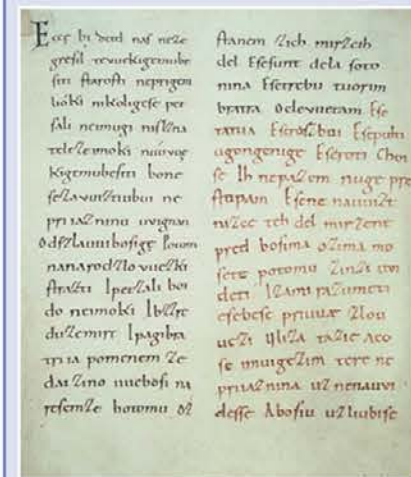 Ecce bi detd naſ neze
greſil tevuekigemube
ſiti ſtaroſti neprigem
lióki nikoligeſe pet
ſali neimugi niſlzna
teleze imoki nuúvue
kigemubeſiti bone
ſezavuiztiubui ne
priiazninu uvignan
Odſzlauuiboſige Potom
nanarodzlovuezki
ſtrazti Ipetzali boi
do neimoki Ibzzre
duzemirt Ipagibra
triia pomenem ze
dai zino uueboſi na
reſemze botomu oz
ſtanem zich mirzcih
del Eſeſunt dela ſoto
nina Eſetrebu tuorim
bratra Oclevuetam Eſe
tatua Eſeraſboi Eſepulti
ugongenige Eſeroti Choi
ſe Ih nepazem nuge pre
ſtopam Eſene nauuizt
nizce teh del mirzene
pred boſima ozima mo
ſete potomu zinzi uvi
deti Izami razumeti
eſebeſe priuuae zlou
uezi Uliza tazie aco
ſe imuigezim tere ne
priiaznina uznenauvi
deſſe Aboſiu uzliubiſe